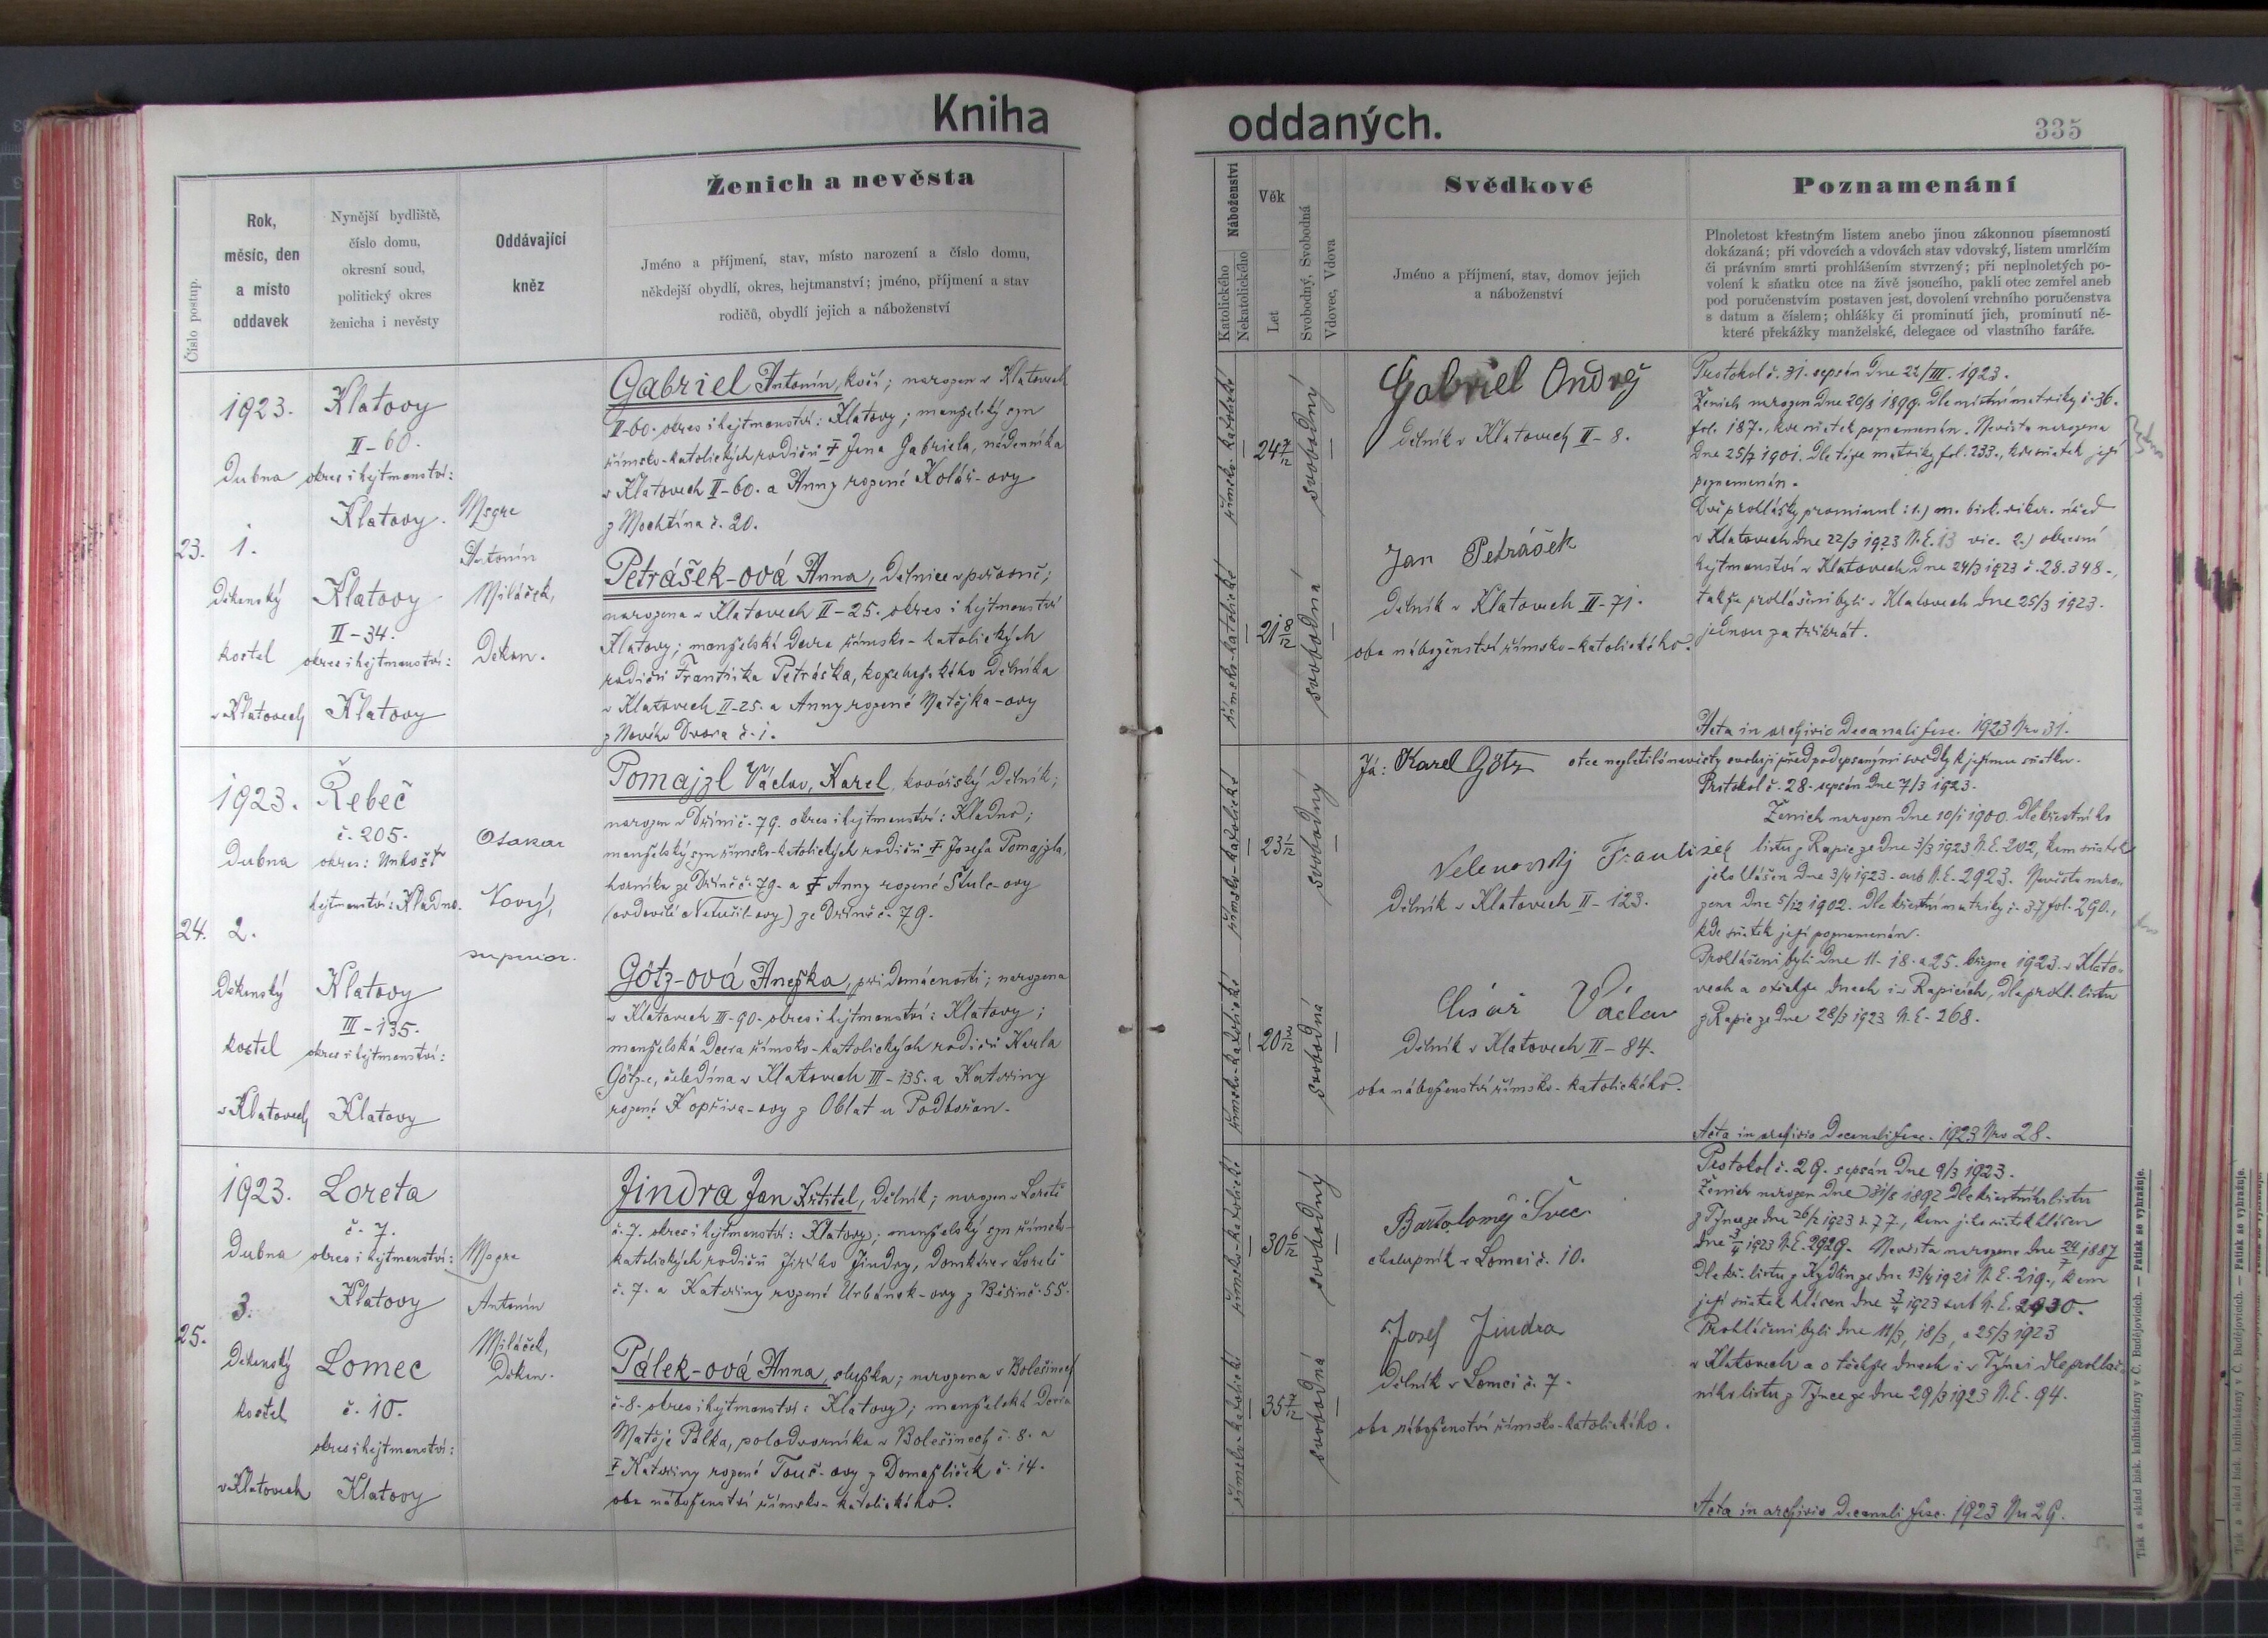 Kniha
oddaných.
335
Číslo postup.
Rok,
měsíc, den
a místo
oddavek
Nynější bydliště,
číslo domu,
okresní soud,
politický okres
ženicha i nevěsty
Oddávající
kněz
Ženich a nevěsta
Jméno a příjmení, stav, místo narození a číslo domu,
někdejší obydlí, okres, hejtmanství; jméno, příjmení a stav
rodičů, obydlí jejich a náboženství
Náboženství
Katolického
Nekatolického
Věk
Let
Svobodný, Svobodná
Vdovec, Vdova
Svědkové
Jméno a příjmení, stav, domov jejich
a náboženství
Poznamenání
Plnoletost křestným listem anebo jinou zákonnou písemností
dokázaná; při vdovcích a vdovách stav vdovský, listem umrlčím
či právním smrti prohlášením stvrzený; při neplnoletých po-
volení k sňatku otce na živě jsoucího, pakli otec zemřel aneb
pod poručenstvím postaven jest, dovolení vrchního poručenstva
s datum a číslem; ohlášky či prominutí jich, prominutí ně-
které překážky manželské, delegace od vlastního faráře.
23.
1923.
Dubna
1.
Děkanský
kostel
v Klatovech
Klatovy
II-60.
okres i hejtmanství:
Klatovy.
Klatovy
II-34.
okres i hejtmanství:
Klatovy
Msgre
Antonín
Miláček,
Děkan.
Gabriel Antonín, kočí; narozen v Klatovech
II-60. okres i hejtmanství: Klatovy; manželský syn
římsko-katolických rodičů † Jana Gabriela, nádenníka
v Klatovech II-60. a Anny rozené Kolář-ovy
z Mochtína č. 20.
Petrášek-ová Anna, dělnice v ;
narozena v Klatovech II-25. okres i hejtmanství
Klatovy; manželská dcera římsko-katolických
rodičů Františka Petráška, koželužského dělníka
v Klatovech II-25. a Anny rozené Matějka-ovy
z Nového Dvora č. 1.
římsko-katolické
24 7/12
svobodný
římsko-katolické
21 8/12
svobodná
Gabriel Ondrej
dělník v Klatovech II-8.
Jan Petrášek
Dělník v Klatovech II-71.
oba náboženství římsko-katolického.
Protokol č. 31. sepsán dne 22/III. 1923.
Ženich narozen dne 20/8 1899. dle místní matriky č. 36.
fol. 187., kde sňatek poznamenán. Nevěsta narozena
dne 25/7 1901. Dle téže matriky fol. 233., kde sňatek její
poznamenán.
Dvě prohlášky prominul: 1.) m. bisk. vikar. úřad
v Klatovech dne 22/3 1923 N.E. 13 vic. 2.) okresní
hejtmanství v Klatovech dne 24/3 1923 č. 28.348.,
takže prohlášeni byli v Klatovech dne 25/3 1923.
jednou za třikrát.
Acta in archivio decanali fasc. 1923 Nro 31.
24.
1923.
Dubna
2.
Děkanský
kostel
v Klatovech
Řebeč
č. 205.
okres: Unhošť
hejtmanství: Kladno.
Klatovy
III-135.
okres i hejtmanství:
Klatovy
Otakar
Nový,
superior.
Tomajzl Václav, Karel, kovářský dělník;
narozen v Dříni č. 79. okres i hejtmanství: Kladno;
manželský syn římsko-katolických rodičů † Josefa Tomajzla,
horníka ze Dříně č. 79. a † Anny rozené Štulc-ovy
(ovdovělé Netušil-ovy) ze Dříně č. 79.
Götz-ová Anežka, při domácnosti; narozena
v Klatovech III-90. okres i hejtmanství: Klatovy;
manželská dcera římsko-katolických rodičů Karla
Götz-e, čeledína v Klatovech III-135. a Kateřiny
rozené Kopřiva-ovy z Oblat u Podbořan.
římsko-katolické
23 1/12
svobodný
římsko-katolické
20 3/12
svobodná
Já: Karel Götz otec nezletilé nevěsty svoluji před podepsanými svědky k jejímu sňatku.
Velenovský František
Dělník v Klatovech II-123.
Císař Václav
Dělník v Klatovech II-84.
oba náboženství římsko-katolického.
Protokol č. 28. sepsán dne 7/3 1923.
Ženich narozen dne 10/1 1900. Dle křestního
listu z Rapic ze dne 3/3 1923 N.E. 202, kam sňatek
jeho hlášen dne 3/4 1923. sub N.E. 2923. Nevěsta naro-
zena dne 5/12 1902. dle křestní matriky č. 37 fol. 290.,
kde sňatek její poznamenán.
Prohlášeni byli dne 11. 18. a 25. března 1923. v Klato-
vech a o těchže dnech i v Rapicích, dle prohl. listu
z Rapic ze dne 28/3 1923 N.E. 268.
Acta in archivio decanali fasc. 1923 Nro 28.
25.
1923.
Dubna
3.
Děkanský
kostel
v Klatovech
Loreta
č. 7.
okres i hejtmanství:
Klatovy
Lomec
č. 10.
okres i hejtmanství:
Klatovy
Msgre
Antonín
Miláček,
Děkan.
Jindra Jan Křtitel, dělník; narozen v Loretě
č. 7. okres i hejtmanství: Klatovy; manželský syn římsko-
katolických rodičů Jiřího Jindry, domkáře v Loretě
č. 7. a Kateřiny rozené Urbánek-ovy z Běšin č. 55.
Pálek-ová Anna, služka; narozena v Bolešinech
č. 8. okres i hejtmanství: Klatovy; manželská dcera
Matěje Pálka, polodvorníka v Bolešinech č. 8. a
† Kateřiny rozené Touš-ovy z Domažliček č. 14.
oba náboženství římsko-katolického.
římsko-katolické
30 6/12
svobodný
římsko-katolické
35
svobodná
Bartoloměj Švec
chalupník v Lomci č. 10.
Josef Jindra
Dělník v Lomci č. 7.
oba náboženství římsko-katolického.
Protokol č. 29. sepsán dne 9/3 1923.
Ženich narozen dne 31/8 1892 dle křestního listu
z Týnce ze dne 26/2 1923 č. 77, kam jeho sňatek hlášen
dne 3/4 1923 N.E. 2929. Nevěsta narozena dne 24/7 1887
dle kř. listu z Kydlin ze dne 13/4 1921 N.E. 219., kam
její sňatek hlášen dne 3/4 1923 sub N.E. 2930.
Prohlášeni byli dne 11/3, 18/3, a 25/3 1923
v Klatovech a o těchže dnech i v Týnci dle prohláš-
ního listu z Týnce ze dne 29/3 1923 N.E. 94.
Acta in archivio decanali fasc. 1923 Nro 29.
Tisk a sklad bisk. knihtiskárny v Č. Budějovicích. — Patisk se vyhražuje.